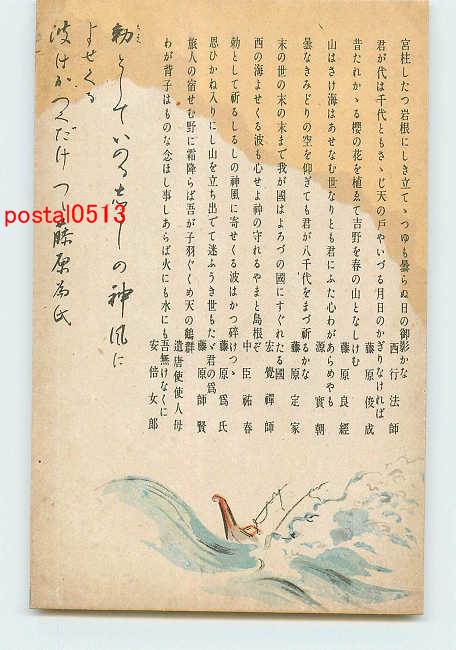 宮柱したつ岩根にしき立てゝつゆも曇らぬ日の御影かな
西行法師
君が代は千代ともさゝじ天の戸やいづる月日のかぎりなければ
藤原俊成
昔たれかゝる櫻の花を植ゑて吉野を春の山となしけむ
藤原良經
山はさけ海はあせなむ世なりとも君にふた心わがあらめやも
源實朝
曇なきみどりの空を仰ぎても君が八千代をまづ祈るかな
藤原定家
末の世の末の末まで我が國はよろづの國にすぐれたる國
宏覺禪師
西の海よせくる波も心せよ神の守れるやまと島根ぞ
中臣祐春
勅として祈るしるしの神風に寄せくる波はかつ碎けつゝ
藤原爲氏
思ひかね入りにし山を立ち出でて迷ふうき世もたゞ君の爲
藤原師賢
旅人の宿せむ野に霜降らば吾が子羽ぐくめ天の鶴群
遣唐使使人母
わが背子はものな念ほし事しあらば火にも水にも吾無けなくに
安倍女郎
勅としていのるしるしの神風に
よせくる
波はかつくだけつゝ 藤原為氏
postal0513